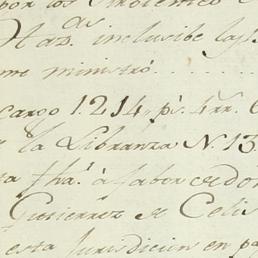 por los
Haz.das inclusibe las
me ministró.........
cargo 1.214, ps. 4rr. 6
la Libranza N. 13
ta fha. à fabor de don
Gutierrez de Celis
esta Jurisdicion en pa